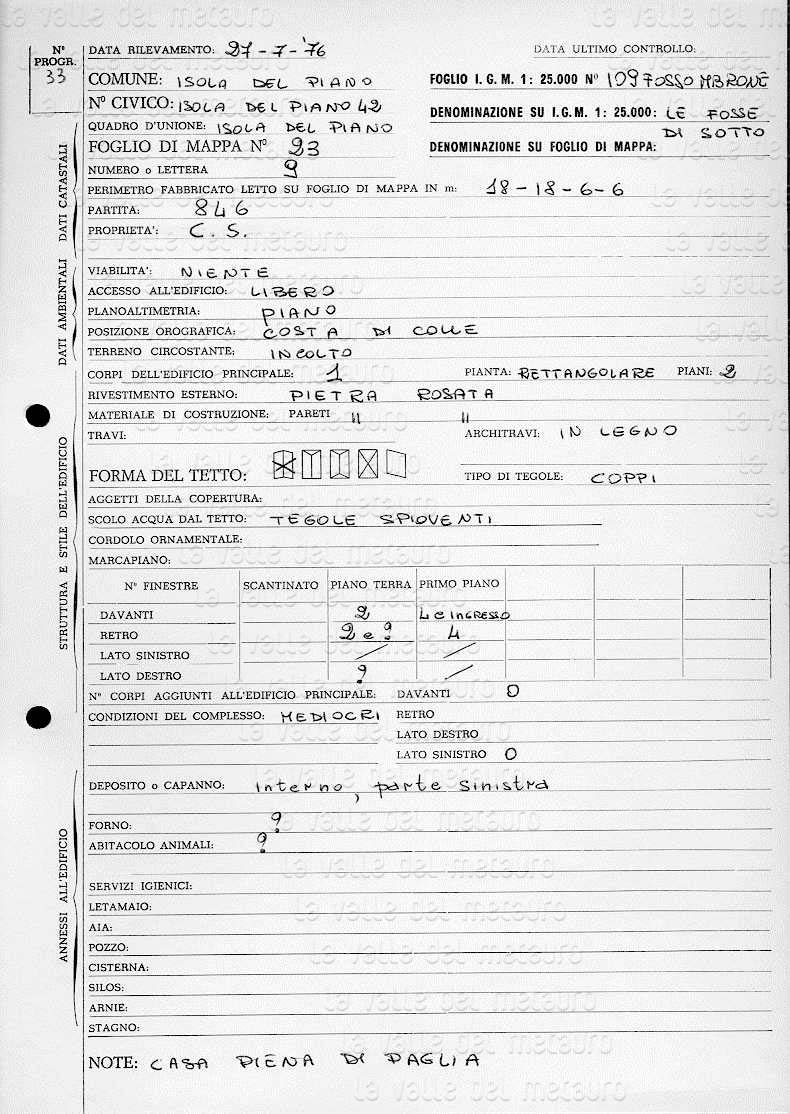 N°
PROGR.
33
DATA RILEVAMENTO: 27-7-'76
DATA ULTIMO CONTROLLO:
COMUNE: ISOLA DEL PIANO
FOGLIO I. G. M. 1: 25.000 N° 109 FOSSOMBRONE
N° CIVICO: ISOLA DEL PIANO 42
DENOMINAZIONE SU I.G.M. 1: 25.000: LE FOSSE
DI SOTTO
QUADRO D'UNIONE: ISOLA DEL PIANO
FOGLIO DI MAPPA N° 23
DENOMINAZIONE SU FOGLIO DI MAPPA:
NUMERO o LETTERA 9
PERIMETRO FABBRICATO LETTO SU FOGLIO DI MAPPA IN m: 18-18-6-6
PARTITA: 846
PROPRIETA': C. S.
DATI CATASTALI
VIABILITA': NIENTE
ACCESSO ALL'EDIFICIO: LIBERO
PLANOALTIMETRIA: PIANO
POSIZIONE OROGRAFICA: COSTA DI COLLE
TERRENO CIRCOSTANTE: INCOLTO
DATI AMBIENTALI
CORPI DELL'EDIFICIO PRINCIPALE: 1 PIANTA: RETTANGOLARE PIANI: 2
RIVESTIMENTO ESTERNO: PIETRA ROSATA
MATERIALE DI COSTRUZIONE: PARETI " "
TRAVI: ARCHITRAVI: IN LEGNO
FORMA DEL TETTO: TIPO DI TEGOLE: COPPI
AGGETTI DELLA COPERTURA:
SCOLO ACQUA DAL TETTO: TEGOLE SPIOVENTI
CORDOLO ORNAMENTALE:
MARCAPIANO:
N° FINESTRE SCANTINATO PIANO TERRA PRIMO PIANO
DAVANTI 2 4 e INGRESSO
RETRO 2 e ? 4
LATO SINISTRO / /
LATO DESTRO ? /
N° CORPI AGGIUNTI ALL'EDIFICIO PRINCIPALE: DAVANTI 0
CONDIZIONI DEL COMPLESSO: MEDIOCRI RETRO
LATO DESTRO
LATO SINISTRO 0
STRUTTURA E STILE DELL'EDIFICIO
DEPOSITO o CAPANNO: interno, parte sinistra
FORNO: ?
ABITACOLO ANIMALI: ?
SERVIZI IGIENICI:
LETAMAIO:
AIA:
POZZO:
CISTERNA:
SILOS:
ARNIE:
STAGNO:
ANNESSI ALL'EDIFICIO
NOTE: CASA PIENA DI PAGLIA
la valle del metauro